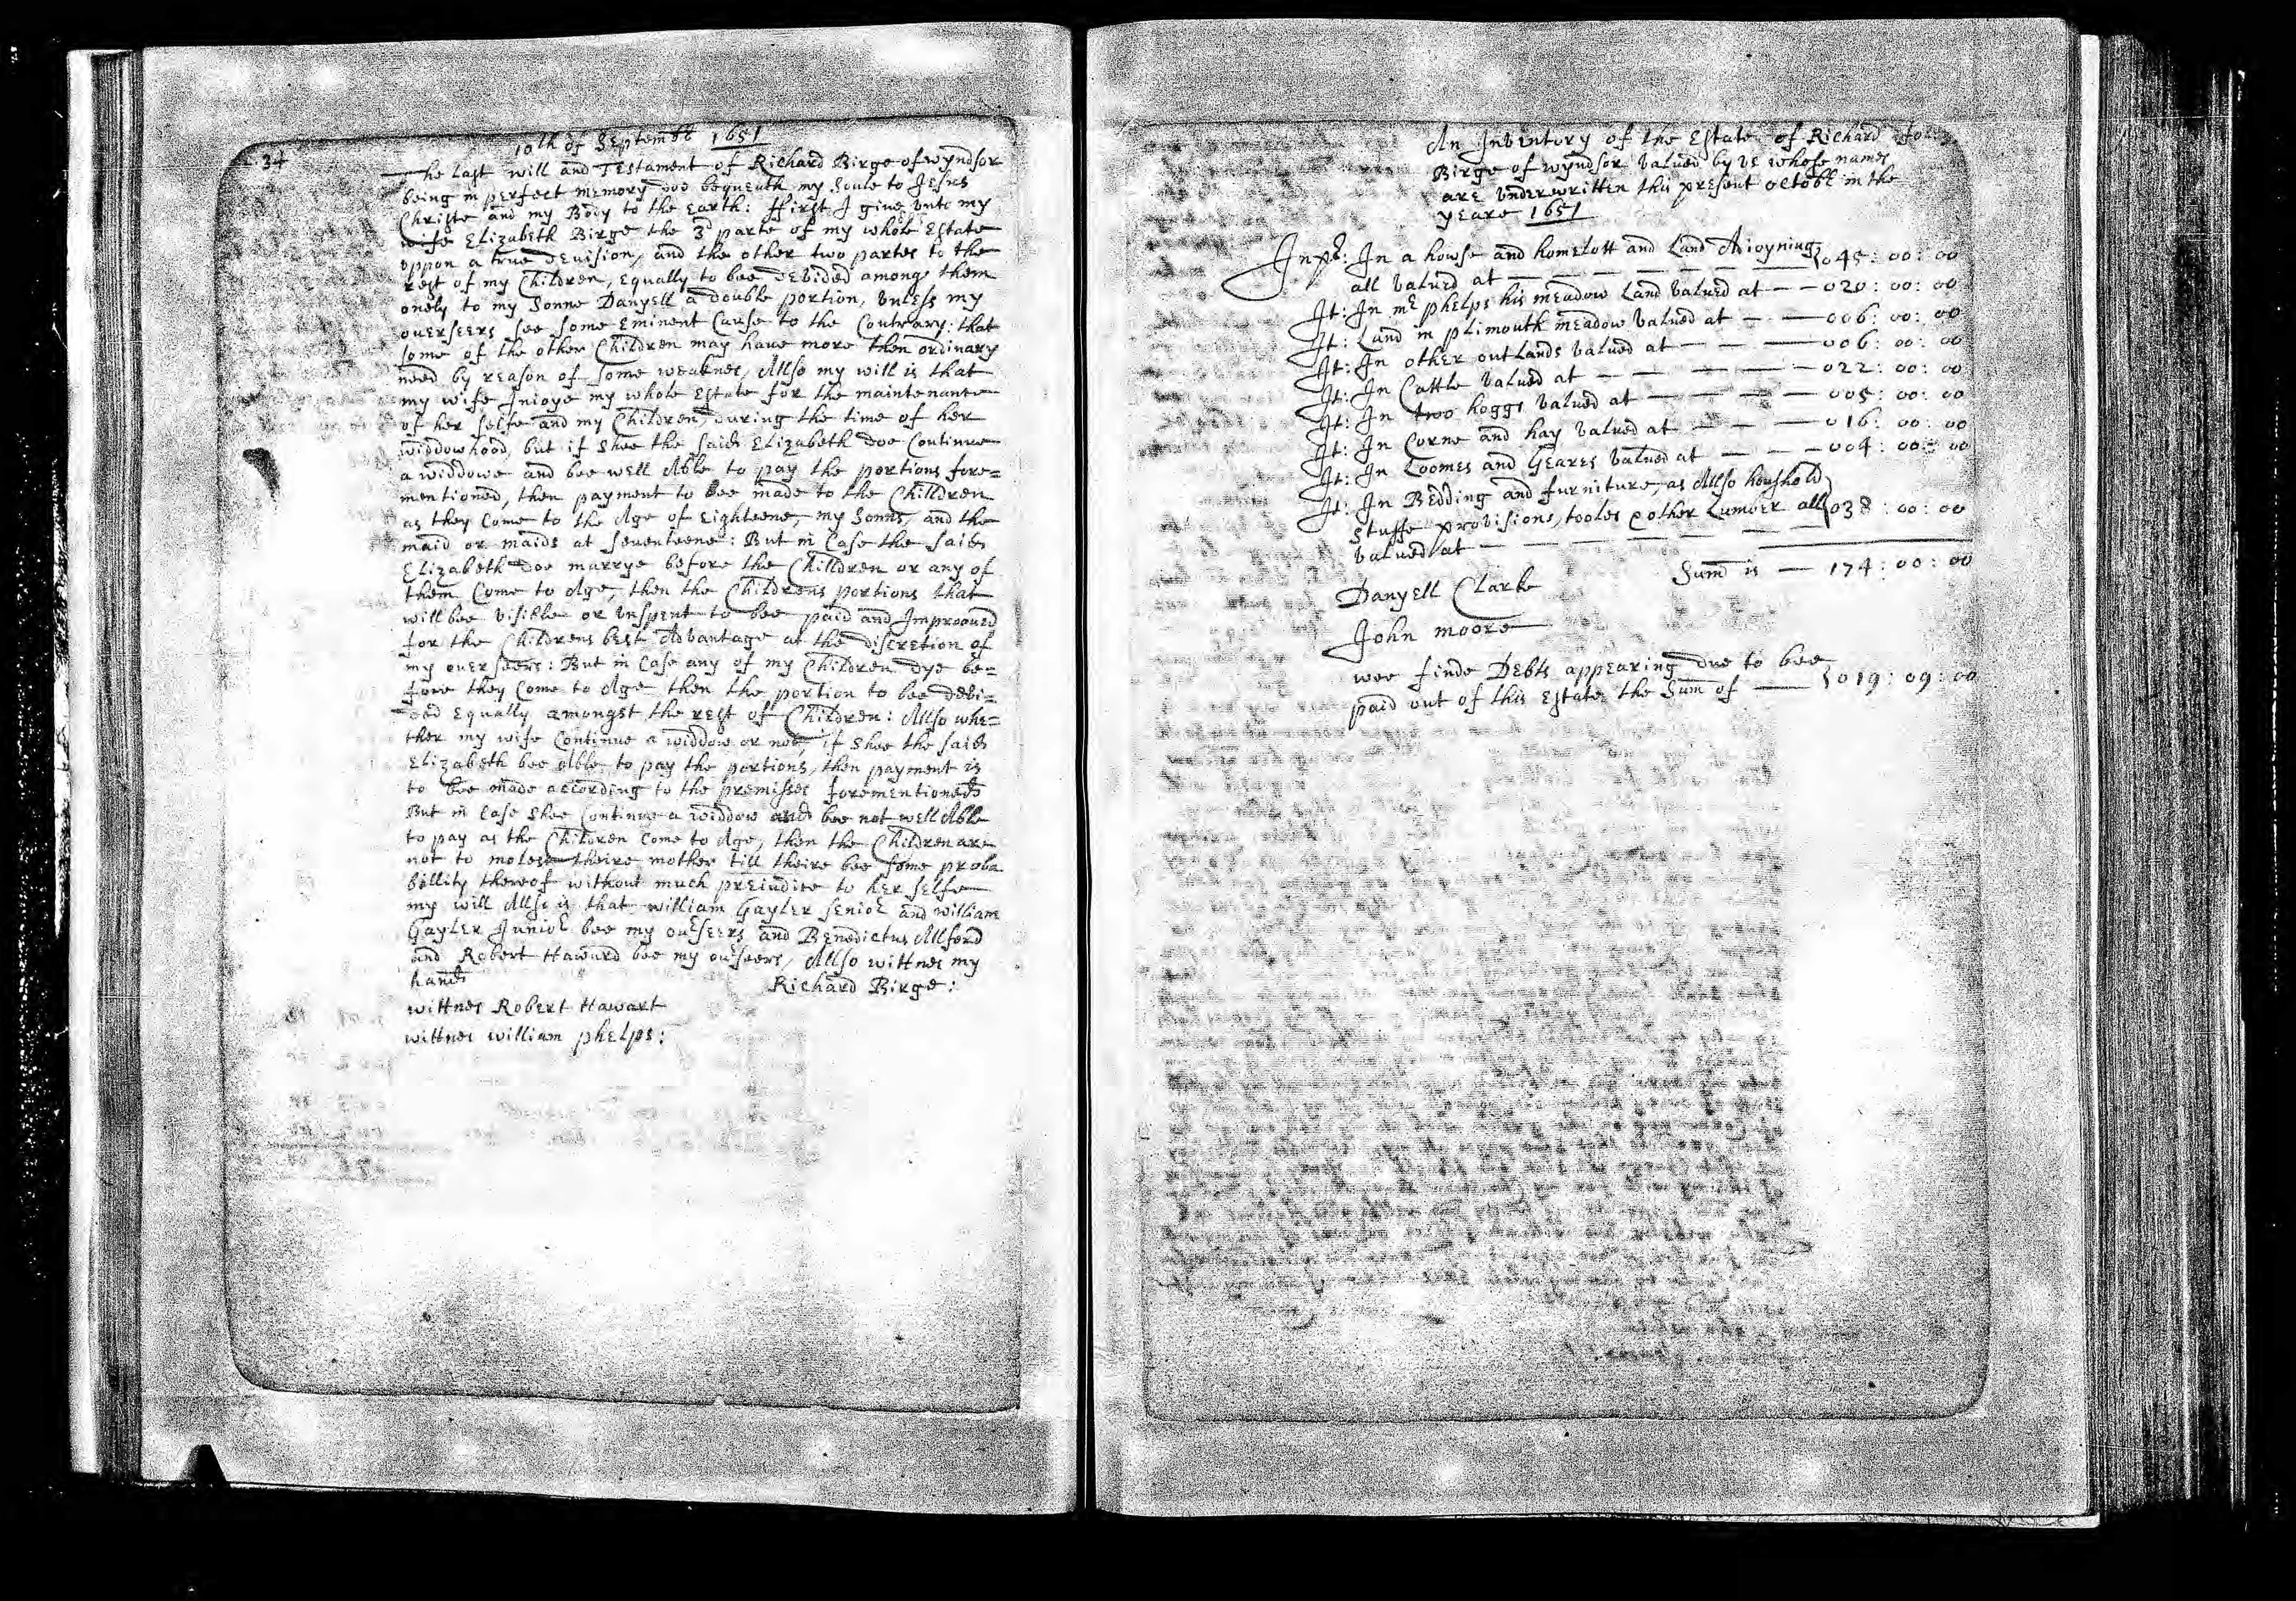 34
10th of Septembr 1651
The last will and Testament of Richard Birge of wyndsor
being in perfect memory doe bequeath my Soule to Jesus
Christe and my Body to the Earth: ffirst I give unto my
wife Elizabeth Birge the 3d parte of my whole Estate
uppon a true devision, and the other two partes to the
rest of my Children, Equally to bee devided amongs them
onely to my Sonne Danyell a double portion, unless my
overseers see some Eminent Cause to the Contrary: that
some of the other Children may have more then ordinary
need by reason of some weaknes, Allso my will is that
my wife Inioye my whole Estate for the maintenance
of her selfe and my Children, during the time of her
widdowhood, but if Shee the said Elizabeth doe Continue
a widdowe and bee well Able to pay the portions fore=
mentioned, then payment to bee made to the Chilldren
as they Come to the Age of Eighteene, my Sonns, and the
maid or maids at Seventeene: But in Case the said
Elizabeth doe marrye before the Chilldren or any of
them Come to Age, then the Childrens portions that
will bee visible or unspent to bee paid and Improoved
for the Childrens best Advantage at the discretion of
my overseers: But in Case any of my Children dye be=
fore they Come to Age then the portion to bee devi=
ded Equally amongst the rest of Children: Allso whe=
ther my wife Continue a widdow or not, if Shee the said
Elizabeth bee Able to pay the portions, then payment is
to bee made according to the premisses forementioned
But in Case Shee Continue a widdow and bee not well Able
to pay as the Children Come to Age, then the Children are
not to molest theire mother till theire bee some proba
billity thereof without much preiudice to her selfe
my will Allso is that william Gayler senior and william
Gayler Junior bee my overseers and Benedictus Allford
and Robert Haward bee my overseers, Allso wittnes my
hand
Richard Birge:
wittnes Robert Hawart
wittnes william phelps:
An Inventory of the Estate of Richard
Birge of wyndsor valued by us whose names
are underwritten this present octobr in the
yeare 1651
Inpr: In a howse and homelott and Land Aioyning
all valued at — 045: 00: 00
It: In mr phelps his meadow Land valued at — 020: 00: 00
It: Land in plimouth meadow valued at — 006: 00: 00
It: In other outLands valued at — 006: 00: 00
It: In Cattle valued at — 022: 00: 00
It: In two hoggs valued at — 005: 00: 00
It: In Corne and hay valued at — 016: 00: 00
It: In Loomes and Geares valued at — 004: 00: 00
It: In Bedding and furniture, as Allso houshold
Stuffe provisions, tooles & other Lumber all 038: 00: 00
valued at —
Sum is — 174: 00: 00
Danyell Clarke
John moore
wee finde Debts appearing due to bee
paid out of this Estate the Sum of — 019: 09: 00